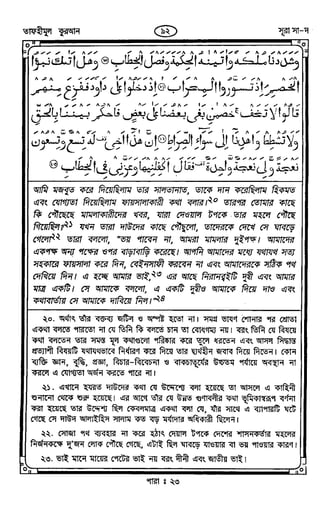 তাফহীমুল কুরআন
৯২
সূরা সা-দ
وَشَدَدْنَا مُلْكَهٗ وَاٰتَيْنٰهُ الْحِكْمَةَ وَفَصْلَ الْخِطَابِ ⑳ وَهَلْ اَتٰىكَ نَبَؤُا
الْخَصْمِ اِذْ تَسَوَّرُوا الْمِحْرَابَ ㉑ اِذْ دَخَلُوْا عَلٰى دَاوٗدَ فَفَزِعَ مِنْهُمْ
قَالُوْا لَا تَخَفْ خَصْمٰنِ بَغٰى بَعْضُنَا عَلٰى بَعْضٍ فَاحْكُمْ بَيْنَنَا بِالْحَقِّ
وَلَا تُشْطِطْ وَاهْدِنَا اِلٰى سَوَآءِ الصِّرَاطِ ㉒ اِنَّ هٰذَا اَخِيْ لَهٗ تِسْعٌ وَّتِسْعُوْنَ
نَعْجَةً وَّلِيَ نَعْجَةٌ وَّاحِدَةٌ فَقَالَ اَكْفِلْنِيْهَا وَعَزَّنِيْ فِي الْخِطَابِ ㉓
আমি মজবুত করে দিয়েছিলাম তার সালতানাত, তাকে দান করেছিলাম হিকমত
এবং যোগ্যতা দিয়েছিলাম ফায়সালাকারী কথা বলার।২০ তারপর তোমার কাছে
কি পৌঁছেছে মামলাকারীদের খবর, যারা দেওয়াল টপকে তার মহলে পৌঁছে
গিয়েছিল?২১ যখন তারা দাউদের কাছে পৌঁছুলো, তাদেরকে দেখে সে ঘাবড়ে
গেলো২২ তারা বললো, “ভয় পাবেন না, আমরা মামলার দুইপক্ষ। আমাদের
একপক্ষ অন্য পক্ষের ওপর বাড়াবাড়ি করেছে। আপনি আমাদের মধ্যে যথাযথ সত্য
সহকারে ফায়সালা করে দিন, বেইনসাফী করবেন না এবং আমাদেরকে সঠিক পথ
দেখিয়ে দিন। এ হচ্ছে আমার ভাই,২৩ এর আছে নিরানব্বইটি দুম্বী এবং আমার
মাত্র একটি। সে আমাকে বললো, এ একটি দুম্বীও আমাকে দিয়ে দাও এবং
কথাবার্তায় সে আমাকে দাবিয়ে নিল।”২৪
২০. অর্থাৎ তাঁর বক্তব্য জটিল ও অস্পষ্ট হতো না। সমগ্র ভাষণ শোনার পর শ্রোতা
একথা বলতে পারতো না যে তিনি কি বলতে চান তা বোধগম্য নয়। বরং তিনি যে বিষয়ে
কথা বলতেন তার সমস্ত মূল কথাগুলো পরিষ্কার করে তুলে ধরতেন এবং আসল সিদ্ধান্ত
প্রত্যাশী বিষয়টি যথাযথভাবে নির্ধারণ করে দিয়ে তার দ্ব্যর্থহীন জবাব দিয়ে দিতেন। কোন
ব্যক্তি জ্ঞান, বুদ্ধি, প্রজ্ঞা, বিচার-বিবেচনা ও বাকচাতূর্যের উচ্চতম পর্যায়ে অবস্থান না
করলে এ যোগ্যতা অর্জন করতে পারে না।
২১. এখানে হযরত দাউদের কথা যে উদ্দেশ্যে বলা হয়েছে তা আসলে এ কাহিনী
শুনানো থেকে শুরু হয়েছে। এর আগে তাঁর যে উন্নত গুণাবলীর কথা ভূমিকাস্বরূপ বর্ণনা
করা হয়েছে তার উদ্দেশ্য ছিল কেবলমাত্র একথা বলা যে, যাঁর সাথে এ ব্যাপারটি ঘটে
গেছে সে দাউদ আলাইহিস সালাম কত বড় মর্যাদার অধিকারী ছিলেন।
২২. সোজা পথ ব্যবহার না করে হঠাৎ দেয়াল টপকে দেশের শাসনকর্তার মহলের
নির্জনকক্ষে দু’জন লোক পৌঁছে গেছে, এটাই ছিল ঘাবড়ে যাওয়ার বা ভয় পাওয়ার কারণ।
২৩. ভাই মানে মায়ের পেটের ভাই নয় বরং দীনী এবং জাতীয় ভাই।
পারা : ২৩